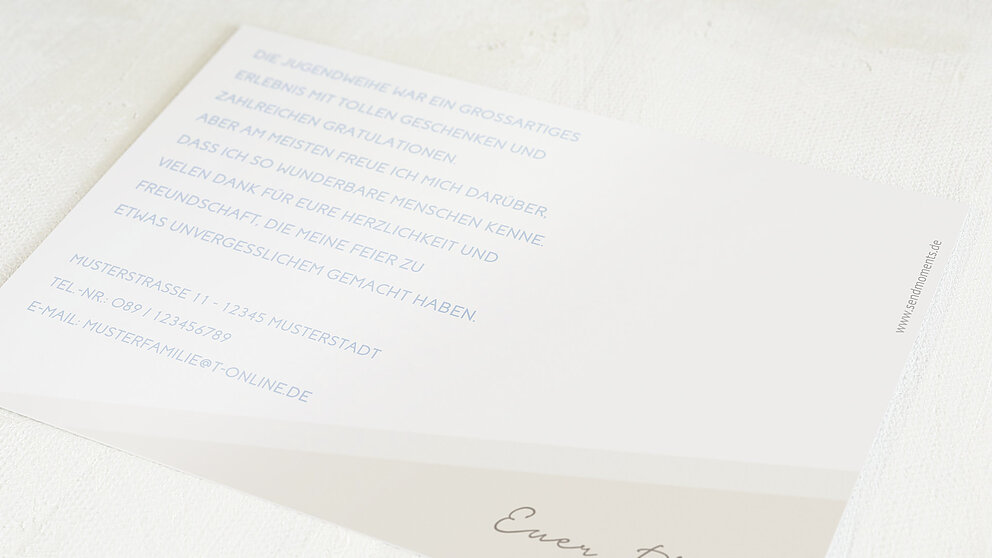 DIE JUGENDWEIHE WAR EIN GROSSARTIGES
ERLEBNIS MIT TOLLEN GESCHENKEN UND
ZAHLREICHEN GRATULATIONEN.
ABER AM MEISTEN FREUE ICH MICH DARÜBER,
DASS ICH SO WUNDERBARE MENSCHEN KENNE.
VIELEN DANK FÜR EURE HERZLICHKEIT UND
FREUNDSCHAFT, DIE MEINE FEIER ZU
ETWAS UNVERGESSLICHEM GEMACHT HABEN.
MUSTERSTRASSE 11 - 12345 MUSTERSTADT
TEL.-NR.: 089 / 123456789
E-MAIL: MUSTERFAMILIE@T-ONLINE.DE
Euer
www.sendmoments.de